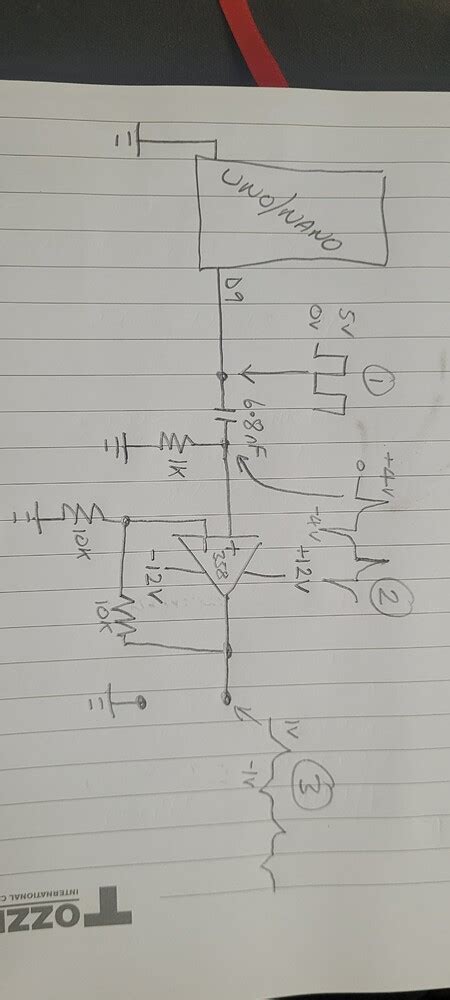 UNO/NANO
D9
5V
0V
1
6.8nF
1K
+4V
0
-4V
2
+
-
358
+12V
-12V
10K
10K
1V
-1V
3
TOZZ
INTERNATIONAL C